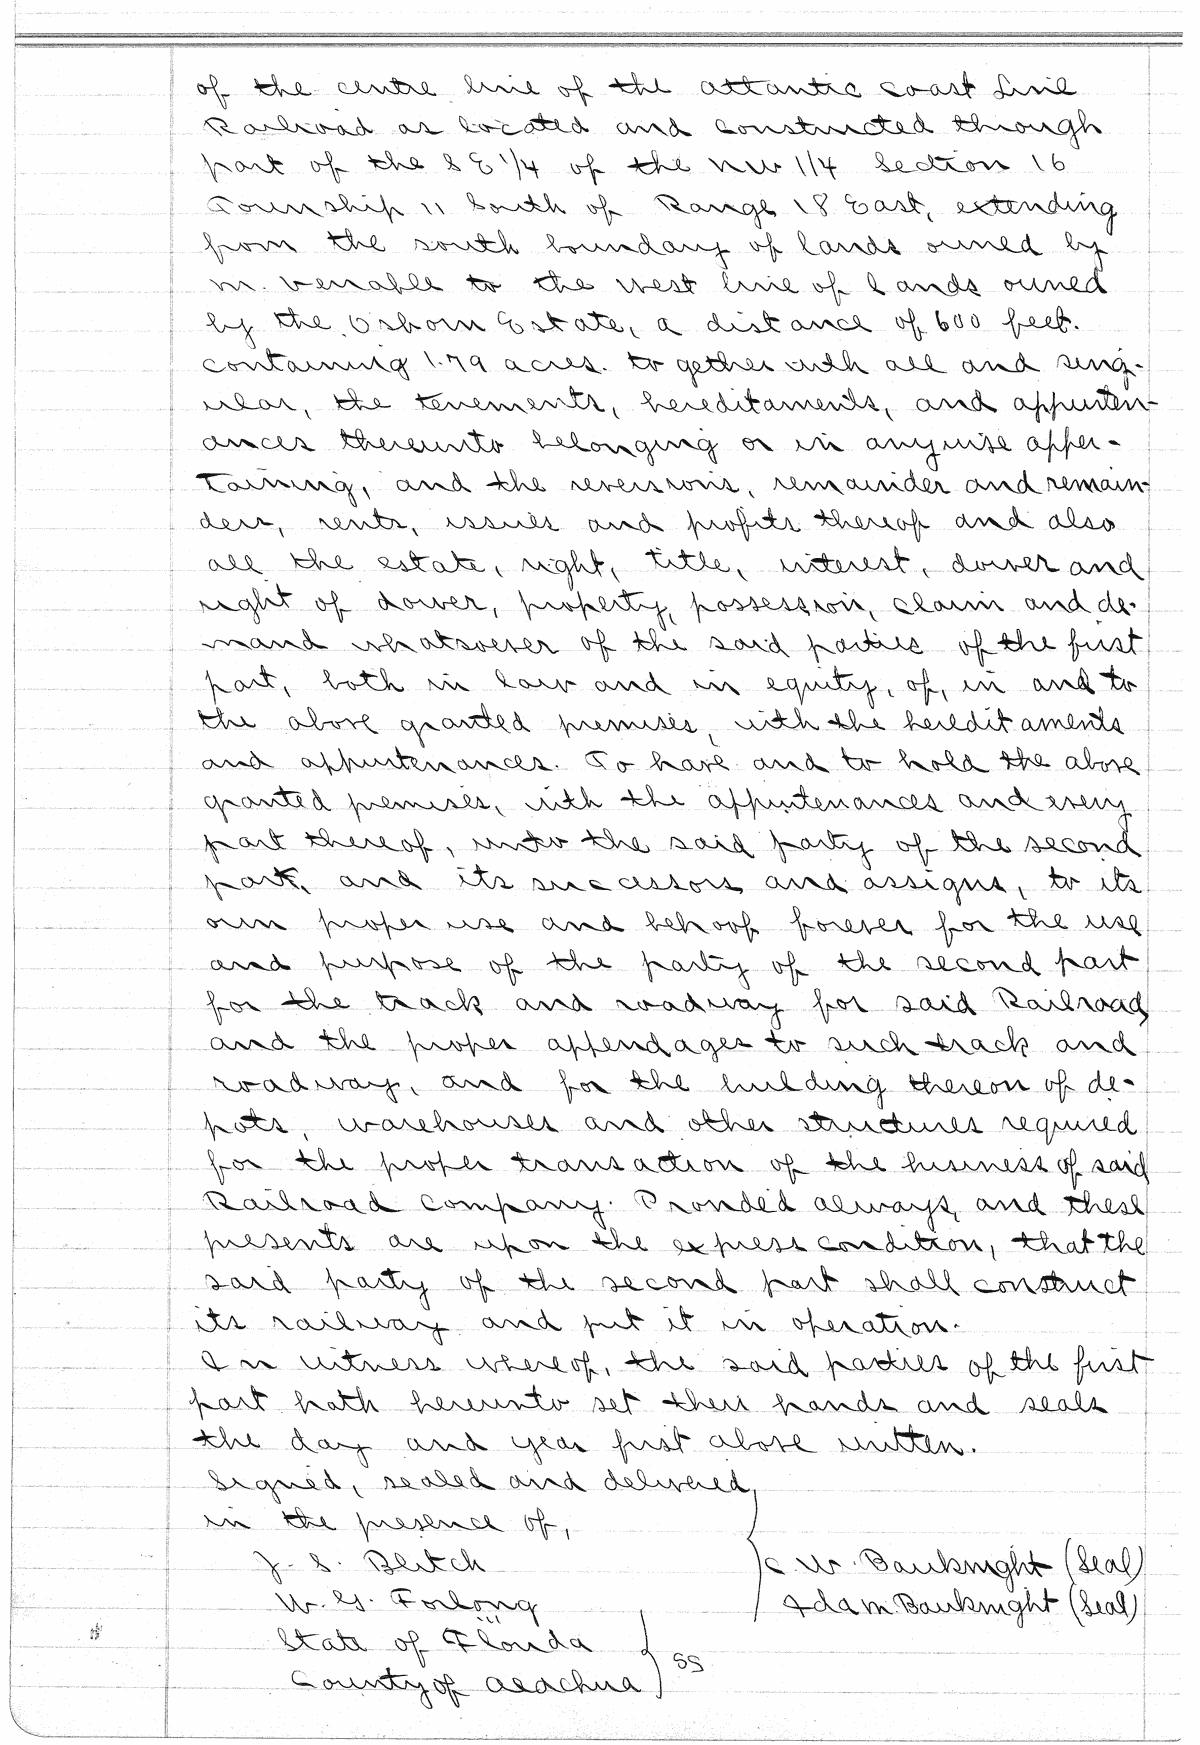 of the centre line of the Atlantic Coast Line
Railroad as located and constructed through
part of the S E 1/4 of the NW 1/4 Section 16
Township 11 South of Range 18 East, extending
from the south boundary of lands owned by
M. Venable to the west line of lands owned
by the Osborn Estate, a distance of 600 feet.
containing 1.79 acres. to gether with all and sing-
ular, the tenements, hereditaments, and appurten-
ances thereunto belonging or in anywise apper-
taining, and the reversions, remainder and remain-
ders, rents, issues and profits thereof and also
all the estate, right, title, interest, dower and
right of dower, property, possession, claim and de-
mand whatsoever of the said parties of the first
part, both in law and in equity, of, in and to
the above granted premises, with the hereditaments
and appurtenances. To have and to hold the above
granted premises, with the appurtenances and every
part thereof, unto the said party of the second
part, and its successors and assigns, to its
own proper use and behoof forever for the use
and purpose of the party of the second part
for the track and roadway for said Railroad
and the proper appendages to such track and
roadway, and for the building thereon of de-
pots, warehouses and other structures required
for the proper transaction of the business of said
Railroad Company. Provided always, and these
presents are upon the express condition, that the
said party of the second part shall construct
its railway and put it in operation.
In witness whereof, the said parties of the first
part hath hereunto set their hands and seals
the day and year first above written.
Signed, sealed and delivered,
in the presence of,
J. S. Blitch
C. W. Bauknight (Seal)
W. G. Forlong
Adam Bauknight (Seal)
State of Florida
County of Alachua } SS